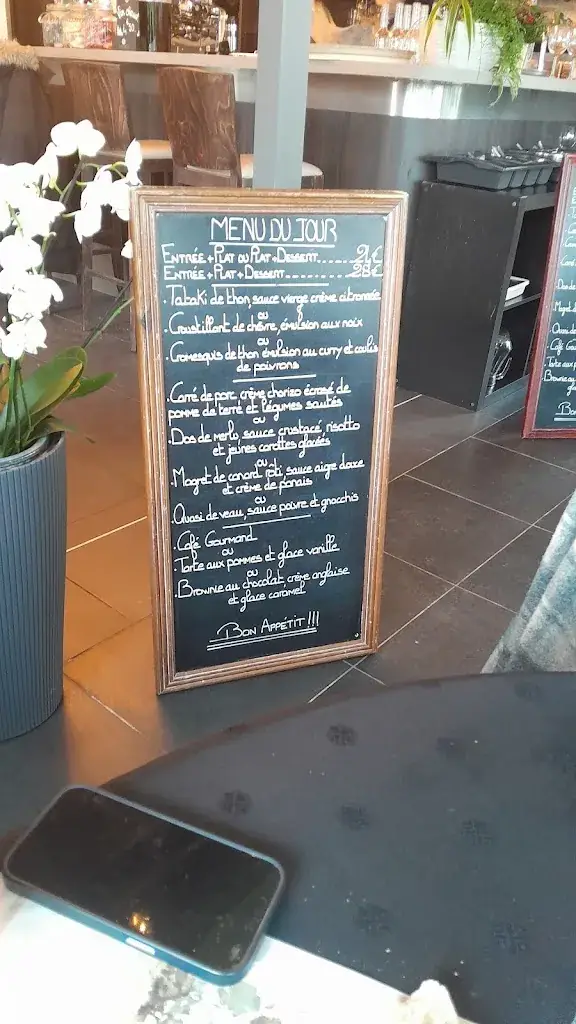 MENU DU JOUR
ENTRÉE + PLAT OU PLAT + DESSERT...... 24€
ENTRÉE + PLAT + DESSERT............ 28€
. Tataki de thon, sauce vierge crème citronnée
ou
. Croustillant de chèvre, émulsion aux noix
ou
. Cromesquis de thon émulsion au curry et coulis
de poivrons
. Carré de porc, crème chorizo écrasé de
pomme de terre et légumes sautés
ou
. Dos de merlu, sauce crustacé, risotto
et jeunes carottes glacées
ou
. Magret de canard rôti, sauce aigre douce
et crème de panais
ou
. Quasi de veau, sauce poivre et gnocchis
. Café Gourmand
ou
. Tarte aux pommes et glace vanille
ou
. Brownie au chocolat, crème anglaise
et glace caramel
BON APPÉTIT !!!